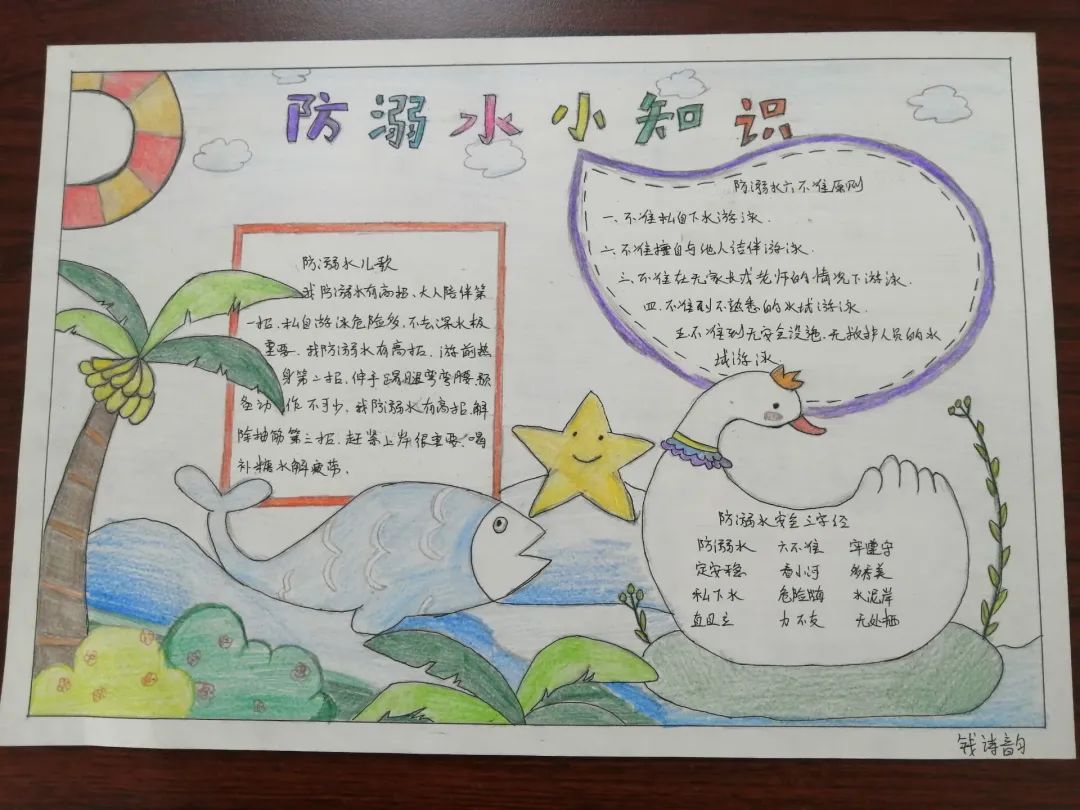 防溺水小知识
防溺水儿歌
我防溺水有高招,大人陪伴第
一招.私自游泳危险多,不去深水极
重要.我防溺水有高招.游前热
身第二招,伸手踢腿弯弯腰.预
备动作不可少.我防溺水有高招.解
除抽筋第三招.赶紧上岸很重要.喝
补糖水解疲劳.
防溺水六不准原则
一.不准私自下水游泳.
二.不准擅自与他人结伴游泳.
三.不准在无家长或老师的情况下游泳.
四.不准到不熟悉的水域游泳.
五.不准到无安全设施.无救护人员的水
域游泳.
防溺水安全三字经
防溺水 六不准 牢遵守
定安稳 看小河 多秀美
私下水 危险酿 水泥岸
直且立 力不支 无处栖
钱诗韵